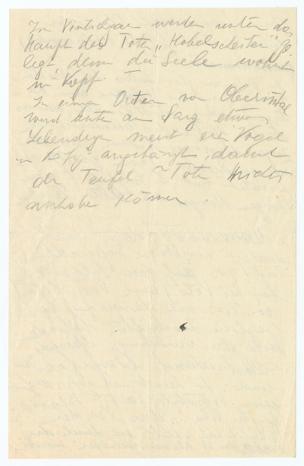 In Vintschgau werden unter das
Haupt des Toten „Hobelscheiten" ge
legt, denn die Seele wohnt
im Kopf. —
In einigen Orten von Oberinntal
wird hinten am Sarg etwas
Lebendiges meist ein Vogel
in Käfig angehängt, damit
der Teufel Toten nichts
anhaben können.